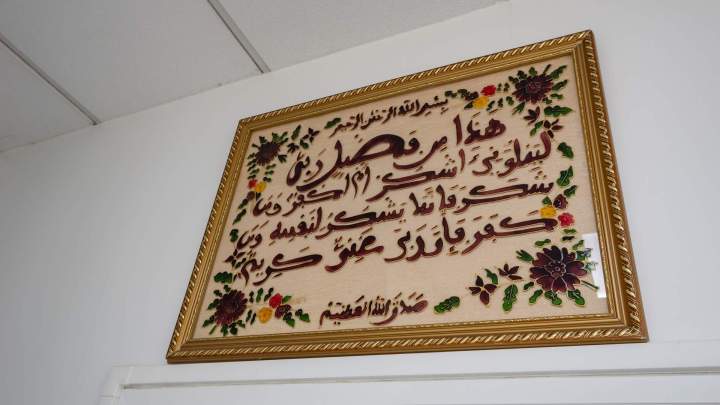 بسم الله الرحمن الرحيم
هذا من فضل ربي
ليبلوني ءاشكر أم اكفر ومن
شكر فإنما يشكر لنفسه ومن
كفر فإن ربي غني كريم
صدق الله العظيم